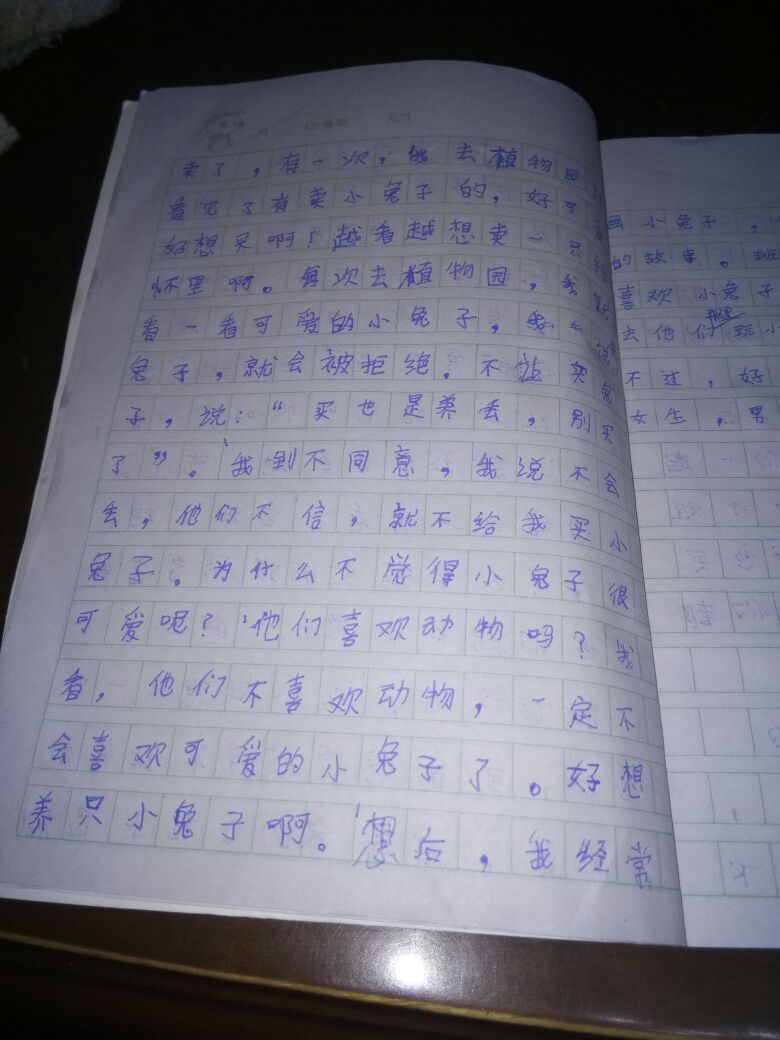 卖了，有一次，我去植物园
看见了有卖小兔子的，好可
好想买啊！越看越想卖一只
怀里啊。每次去植物园，我
看一看可爱的小兔子，我一说
兔子，就会被拒绝。不让买兔
子，说：“买也是养丢，别买
了”。我到不同意，我说不会
丢，他们不信，就不给我买小
兔子。为什么不觉得小兔子很
可爱呢？他们喜欢动物吗？我
看，他们不喜欢动物，一定不
会喜欢可爱的小兔子了。好想
养只小兔子啊。想后，我经常
画小兔子，
的故事。班
喜欢小兔子
去他们玩小
不过，好
女生，男